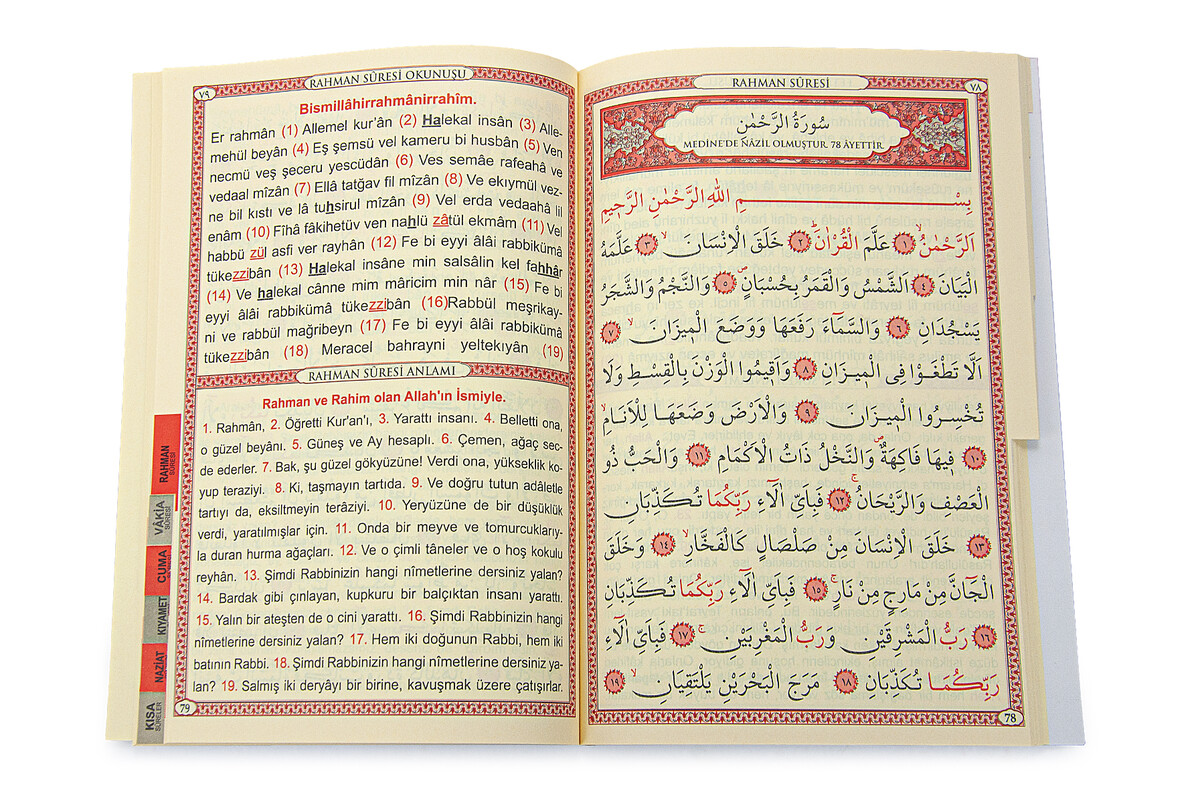 RAHMAN SÛRESİ OKUNUŞU
٧٩
Bismillâhirrahmânirrahîm.
Er rahmân (1) Allemel kur’ân (2) Halekal insân (3) Alle-
mehül beyân (4) Eş şemsü vel kameru bi husbân (5) Ven
necmü veş şeceru yescüdân (6) Ves semâe rafeahâ ve
vedaal mîzân (7) Ellâ tatğav fil mîzân (8) Ve ekıymül vez-
ne bil kıstı ve lâ tuhsirul mîzân (9) Vel erda vedaahâ lil
enâm (10) Fîhâ fâkihetüv ven nahlü zâtül ekmâm (11) Vel
habbü zül asfi ver rayhân (12) Fe bi eyyi âlâi rabbikümâ
tükezzibân (13) Halekal insâne min salsâlin kel fahhâr
(14) Ve halekal cânne mim mâricim min nâr (15) Fe bi
eyyi âlâi rabbikümâ tükezzibân (16)Rabbül meşrikay-
ni ve rabbül mağribeyn (17) Fe bi eyyi âlâi rabbikümâ
tükezzibân (18) Meracel bahrayni yeltekıyân (19)
RAHMAN SÛRESİ ANLAMI
Rahman ve Rahim olan Allah'ın İsmiyle.
1. Rahmân, 2. Öğretti Kur'an'ı, 3. Yarattı insanı. 4. Belletti ona,
o güzel beyânı. 5. Güneş ve Ay hesaplı. 6. Çemen, ağaç sec-
de ederler. 7. Bak, şu güzel gökyüzüne! Verdi ona, yükseklik ko-
yup teraziyi. 8. Ki, taşmayın tartıda. 9. Ve doğru tutun adâletle
tartıyı da, eksiltmeyin terâziyi. 10. Yeryüzüne de bir düşüklük
verdi, yaratılmışlar için. 11. Onda bir meyve ve tomurcukları-
yla duran hurma ağaçları. 12. Ve o çimli tâneler ve o hoş kokulu
reyhân. 13. Şimdi Rabbinizin hangi nîmetlerine dersiniz yalan?
14. Bardak gibi çınlayan, kupkuru bir balçıktan insanı yarattı.
15. Yalın bir ateşten de o cini yarattı. 16. Şimdi Rabbinizin hangi
nîmetlerine dersiniz yalan? 17. Hem iki doğunun Rabbi, hem iki
batının Rabbi. 18. Şimdi Rabbinizin hangi nîmetlerine dersiniz ya-
lan? 19. Salmış iki deryâyı bir birine, kavuşmak üzere çatışırlar.
79
RAHMAN SÛRESİ
VÂKIA SÛRESİ
CUMA
KIYAMET
NAZİAT
KISA SÛRELER
RAHMAN SÛRESİ
٧٨
سُورَةُ الرَّحْمٰنِ
MEDİNE'DE NÂZİL OLMUŞTUR. 78 ÂYETTİR
بِسْمِ اللّٰهِ الرَّحْمٰنِ الرَّحٖيمِ
اَلرَّحْمٰنُۙ ﴿١﴾ عَلَّمَ الْقُرْاٰنَؕ ﴿٢﴾ خَلَقَ الْاِنْسَانَۙ ﴿٣﴾ عَلَّمَهُ
الْبَيَانَ ﴿٤﴾ اَلشَّمْسُ وَالْقَمَرُ بِحُسْبَانٍۖ ﴿٥﴾ وَالنَّجْمُ وَالشَّجَرُ
يَسْجُدَانِ ﴿٦﴾ وَالسَّمَٓاءَ رَفَعَهَا وَوَضَعَ الْمٖيزَانَۙ ﴿٧﴾
اَلَّا تَطْغَوْا فِى الْمٖيزَانِ ﴿٨﴾ وَاَقٖيمُوا الْوَزْنَ بِالْقِسْطِ وَلَا
تُخْسِرُوا الْمٖيزَانَ ﴿٩﴾ وَالْاَرْضَ وَضَعَهَا لِلْاَنَامِۙ
﴿١٠﴾ فٖيهَا فَاكِهَةٌۖ وَالنَّخْلُ ذَاتُ الْاَكْمَامِ ﴿١١﴾ وَالْحَبُّ ذُو
الْعَصْفِ وَالرَّيْحَانُۚ ﴿١٢﴾ فَبِاَىِّ اٰلَٓاءِ رَبِّكُمَا تُكَذِّبَانِ
﴿١٣﴾ خَلَقَ الْاِنْسَانَ مِنْ صَلْصَالٍ كَالْفَخَّارِۙ ﴿١٤﴾ وَخَلَقَ
الْجَٓانَّ مِنْ مَارِجٍ مِنْ نَارٍۚ ﴿١٥﴾ فَبِاَىِّ اٰلَٓاءِ رَبِّكُمَا تُكَذِّبَانِ
﴿١٦﴾ رَبُّ الْمَشْرِقَيْنِ وَرَبُّ الْمَغْرِبَيْنِۚ ﴿١٧﴾ فَبِاَىِّ اٰلَٓاءِ
رَبِّكُمَا تُكَذِّبَانِ ﴿١٨﴾ مَرَجَ الْبَحْرَيْنِ يَلْتَقِيَانِۙ ﴿١٩﴾
78